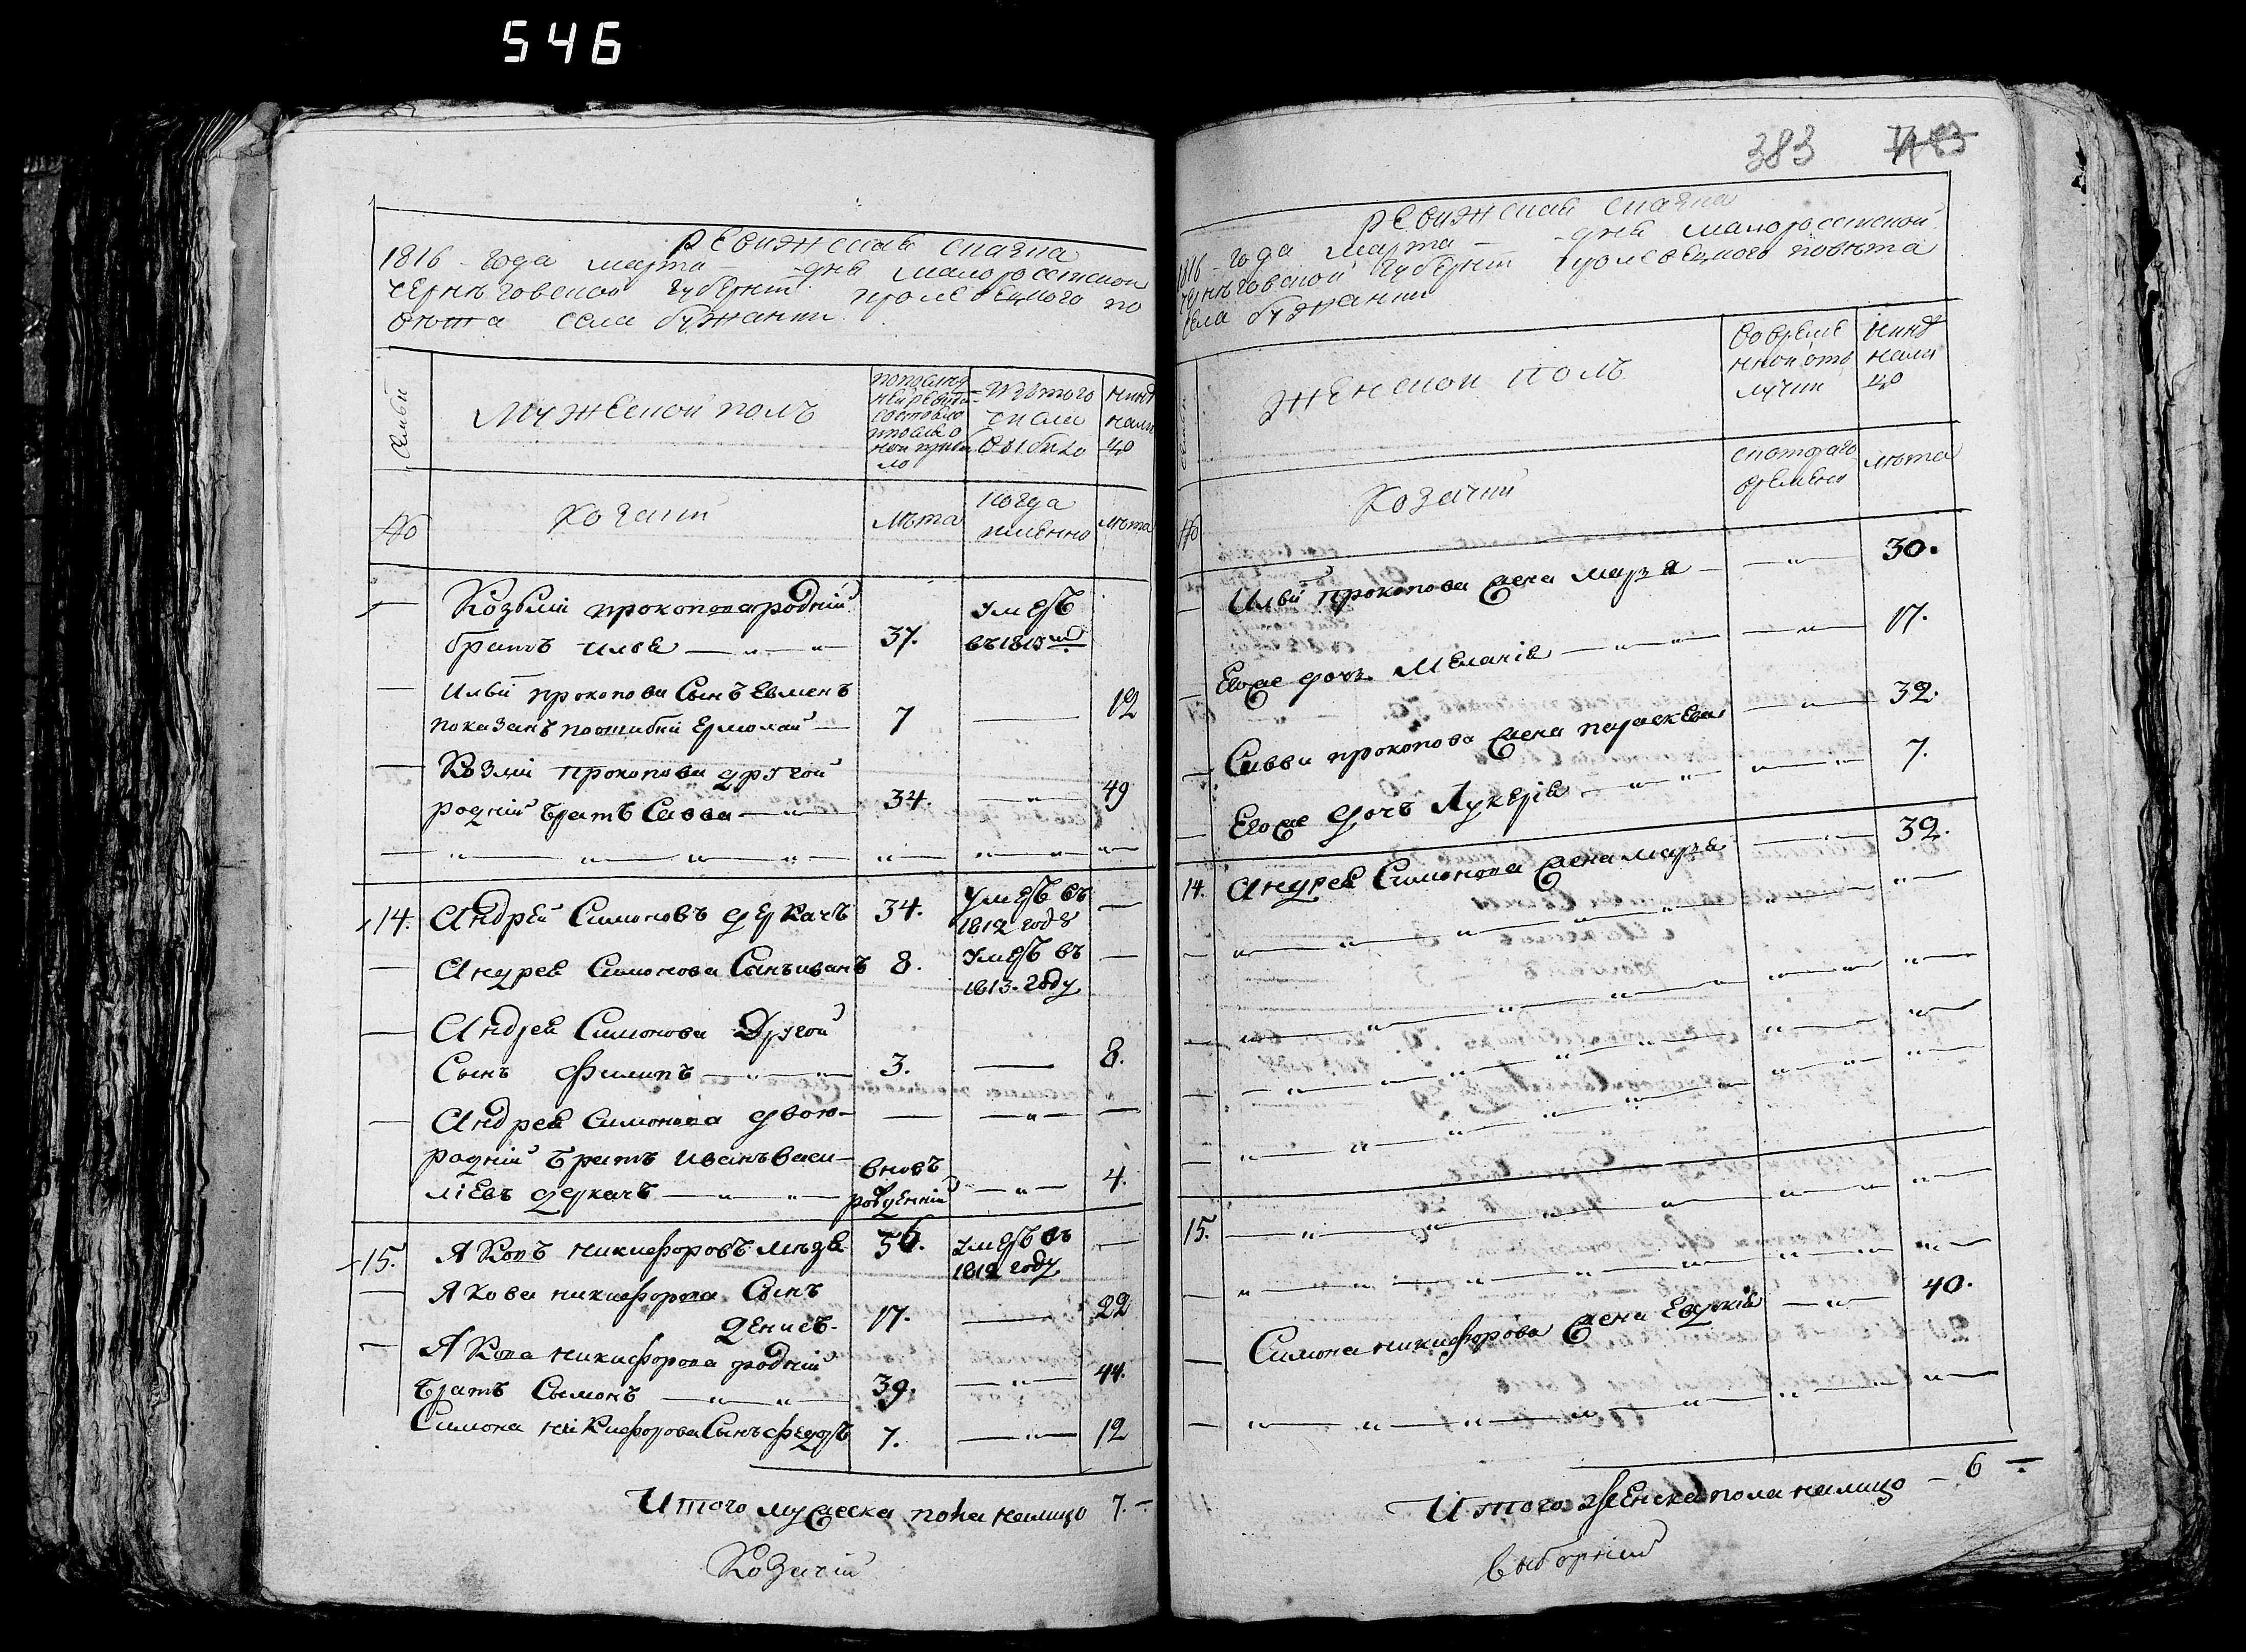 546
Ревижская сказка
1816 года марта — дня малороссийской
Черниговской губернии кролевецкого по
вета села бужанки
Семьи
Мужеской полъ
По последней ревизии состояло и после оной прибыло
Изътого числа выбыло
Ныне налицо
№
Козаки
Лета
Когда именно
Лета
Козьми прокопова родній
братъ илья — " — " 37. Умеръ въ 1813 м
Ильи прокопова Сынъ Евменъ
показанъ поошибки Ермолай — 7 — 12
Козми прокопова другой
родній братъ Савва — " — 34. — " — 49
14. Андрей Симоновъ деркачъ 34. Умеръ въ 1812 году —
Андрея Симонова Сынъ иванъ 8. Умеръ въ 1813. году —
Андрея Симонова Другой
Сынъ Филипъ — " — " — 3. — 8.
Андрея Симонова двою— — — " — —
родній братъ иванъ васи—
лиевъ деркачъ — " — " — вновь рожденній — " — 4.
15. Яковъ никифоровъ 56. Умеръ въ 1812 году —
Якова никифорова Сынъ
денисъ. 17. — 22
Якова никифорова родній
братъ Сымонъ — " — " — 39. — " — 44.
Симона никифорова Сынъ Федоръ 7. — " — 12
Итого мужеска пола налицо 7. —
Козачій
383
Ревижская сказка
1816 года марта — дня малороссийской
Черниговской губернии кролевецкого повета
села бужанки
Семьи
Женской полъ
Во временной отлучки
Ныне налицо
№
Козачки
С которого времени
Лета
Ильи прокопова жена марья — — " — 30.
Егоже дочь Меланія — " — " — — " — 17.
Савви прокопова жена параскева — " — 32.
Егоже дочь Лукерія — " — " — " — 7.
14. Андрея Симонова жена марья — 32.
15. — " — " — " — " — " —
Симона никифорова жена Евдокія — " — 40.
Итого женска пола налицо — 6 —
выборній